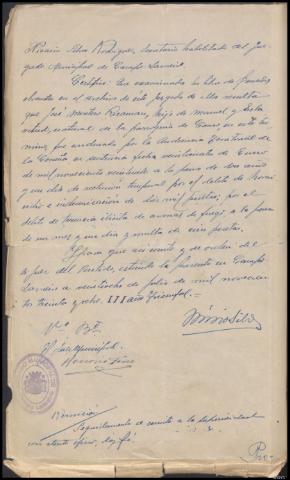 Nicasio Silva Rodriguez, secretario habilitado del Juz-
gado Municipal de Campo Lameiro.
Certifico: Que examinados los libros de penados
obrantes en el archivo de este juzgado de ellos resulta
que José Montes hijo de Manuel y
natural de la parroquia de en este tér-
mino, fue condenado por la Audiencia Provincial de
la Coruña en sentencia fecha veintiuno de
de mil novecientos a la pena de años
y un día de reclusión temporal por el delito de homi-
cidio e indemnización de diez mil pesetas; por el
delito de tenencia ilícita de armas de fuego a la pena
de un mes y un día y multa de cien pesetas.
Y para que así conste y de orden del
Sr. Juez del Partido, extiendo la presente en Campo
Lameiro a veintiocho de julio de mil novecien-
tos treinta y ocho. III año Triunfal.=
Vº Bº
El Juez Municipal,
seguidamente se remite a la superioridad
con atento oficio, doy fé.